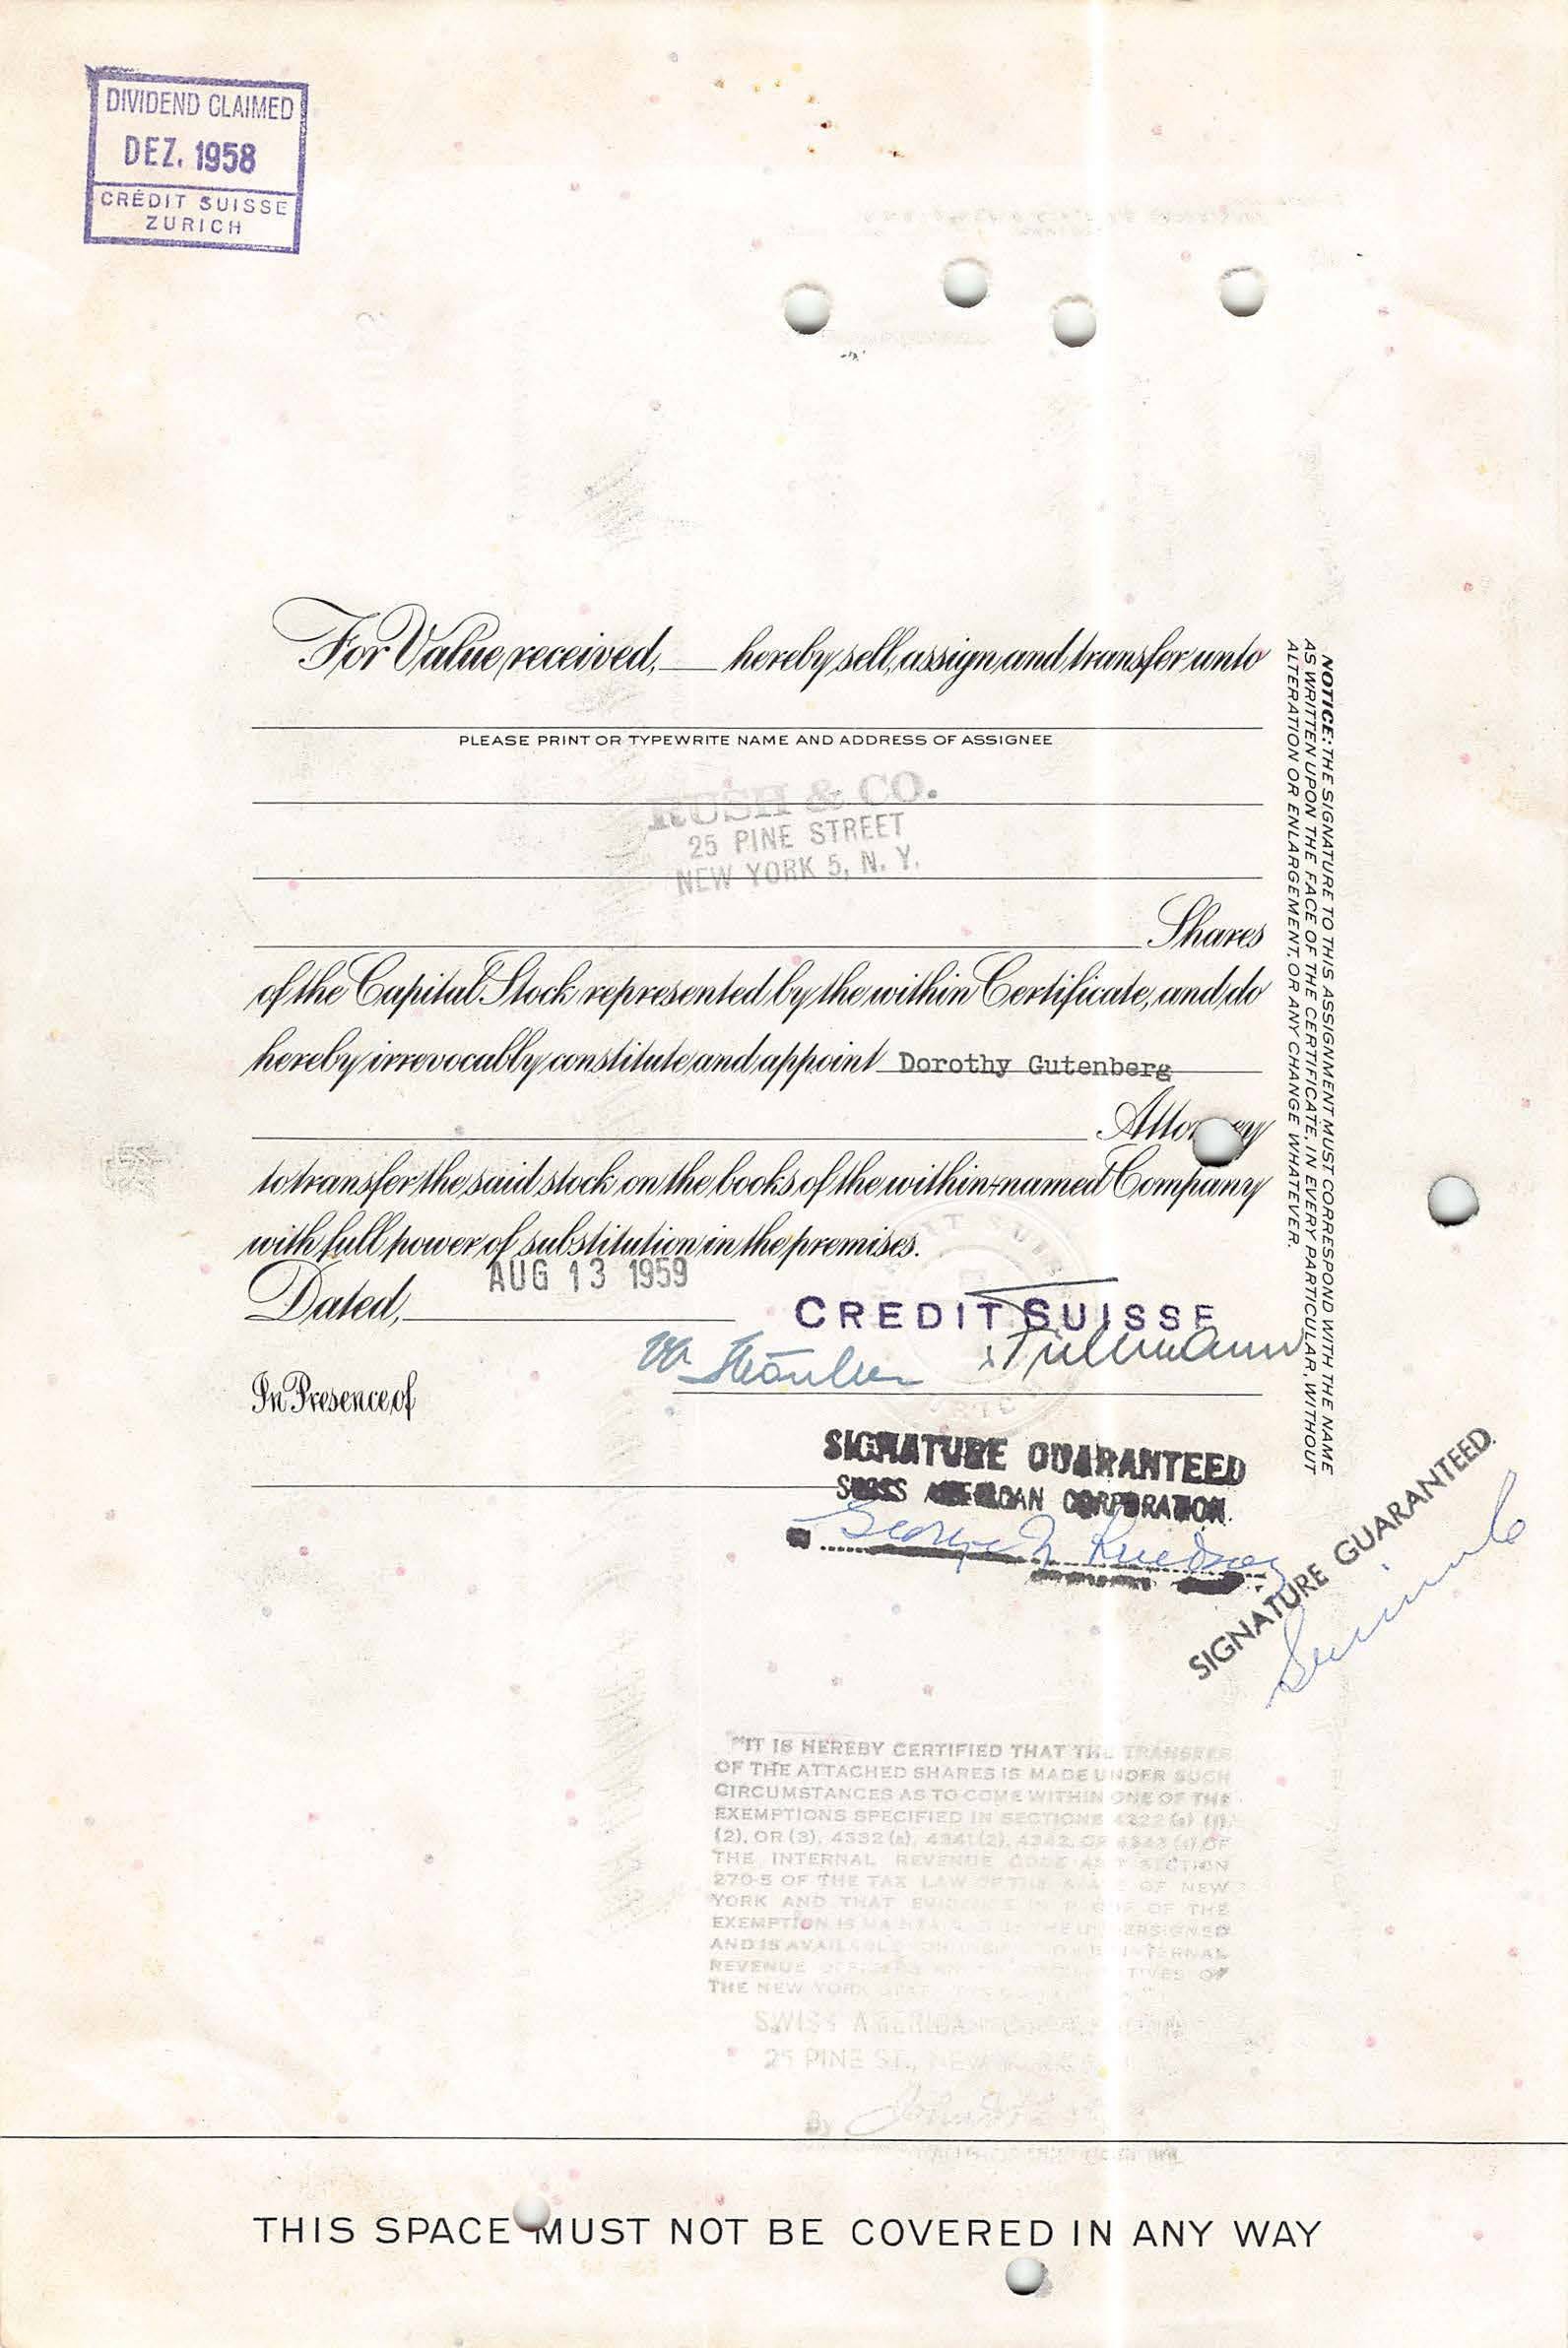 DIVIDEND CLAIMED
DEZ. 1958
CRÉDIT SUISSE
ZURICH
For Value received, hereby sell, assign and transfer unto
PLEASE PRINT OR TYPEWRITE NAME AND ADDRESS OF ASSIGNEE
RUSH & CO.
25 PINE STREET
NEW YORK 5, N. Y.
Shares
of the Capital Stock represented by the within Certificate, and do
hereby irrevocably constitute and appoint Dorothy Gutenberg
Attorney
to transfer the said stock on the books of the within-named Company
with full power of substitution in the premises.
Dated, AUG 13 1959
CREDIT SUISSE
In Presence of
SIGNATURE GUARANTEED
SWISS AMERICAN CORPORATION.
SIGNATURE GUARANTEED.
NOTICE: THE SIGNATURE TO THIS ASSIGNMENT MUST CORRESPOND WITH THE NAME
AS WRITTEN UPON THE FACE OF THE CERTIFICATE, IN EVERY PARTICULAR, WITHOUT
ALTERATION OR ENLARGEMENT, OR ANY CHANGE WHATEVER.
"IT IS HEREBY CERTIFIED THAT THE TRANSFER
OF THE ATTACHED SHARES IS MADE UNDER SUCH
CIRCUMSTANCES AS TO COME WITHIN ONE OF THE
EXEMPTIONS SPECIFIED IN SECTIONS 4322 (a) (1),
(2), OR (3), 4332 (a), 4341 (2), 4342, OR 4343 (a) OF
THE INTERNAL REVENUE CODE SECTION
270-5 OF THE TAX LAW OF THE STATE OF NEW
YORK AND THAT OF THE
EXEMPTION IS
AND IS AVAILABLE INTERNAL
REVENUE OF
THE NEW YORK
SWISS AMERICAN CORPORATION
25 PINE ST., NEW YORK
By
THIS SPACE MUST NOT BE COVERED IN ANY WAY